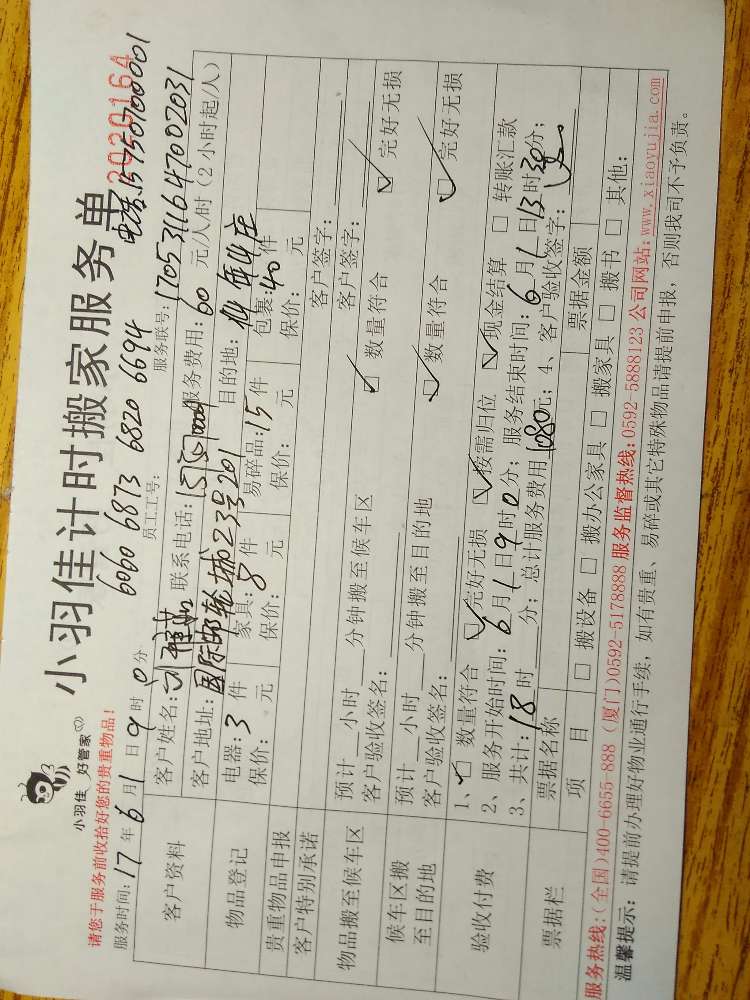 小羽佳 好管家
小羽佳计时搬家服务单
2020164
请您于服务前收拾好您的贵重物品！
6060 6873 6820 6694 电话:15750700001
服务时间:17年6月1日9时0分 员工工号: 服务联号:1705311647002031
客户资料
客户姓名: 联系电话: 服务费用:60元/人/时(2小时起/人)
客户地址:国际邮轮城23号201 目的地:
物品登记
电器:3件 家具:8件 易碎品:15件 包裹:40件
保价: 元 保价: 元 保价: 元 保价: 元
贵重物品申报
客户特别承诺
客户签字:
物品搬至候车区
预计__小时__分钟搬至候车区 ☑数量符合 ☑完好无损
客户验收签名: 客户签字:
候车区搬至目的地
预计__小时__分钟搬至目的地 ☑数量符合 ☑完好无损
客户验收签名:
验收付费
1、☑数量符合 ☑完好无损 ☑按需归位 ☑现金结算 □转账汇款
2、服务开始时间:6月1日9时0分; 服务结束时间:6月1日13时30分;
3、共计:18时__分; 总计服务费用1080元; 4、客户验收签字:
票据栏
票据名称 票据金额
项目 □搬设备 □搬办公家具 □搬家具 □搬书 □其他:
服务热线:(全国)400-6655-888 (厦门)0592-5178888 服务监督热线:0592-5888123 公司网站:www.xiaoyujia.com
温馨提示: 请提前办理好物业通行手续，如有贵重、易碎或其它特殊物品请提前申报，否则我司不予负责。